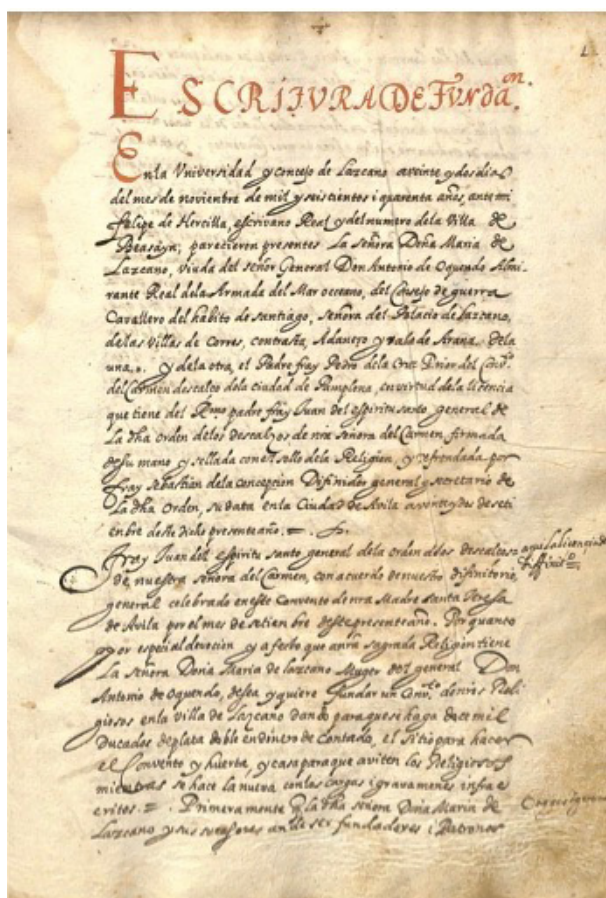 ESCRITVRA DE FVNDAon.
En la Vniversidad y concejo de Lazcano a veinte y dos dias
del mes de noviembre de mil y seiscientos i quarenta años, ante mi
felipe de Hercilla, escrivano Real y del numero dela Villa de
Beasayn; parecieron presentes La señora Doña Maria de
Lazcano, viuda del señor General Don Antonio de Oquendo Almi-
rante Real dela Armada del Mar occeano, del Consejo de guerra
Cavallero del habito de santiago, señora del Palacio de Lazcano,
delas Villas de Corres, contrasta, Adanejo y valo de Arana. dela
una. y dela otra, el Padre fray Pedro dela Cruz Prior del Convto
del Carmen descalço dela ciudad de Pamplona, en virtud dela licencia
que tiene del Rmo padre fray Juan del espiritu santo, general de
La dha orden delos descalços de nra señora del Carmen, firmada
de su mano, y sellada con el sello dela Religion, y refrendada por
fray sebastian dela concepcion Difinidor general y secretario de
La dha Orden, su data en la Ciudad de Avila a veinte y dos de seti
enbre deste dicho presente año. =
fray Juan del espiritu santo general dela orden delos descalços aqui la licencia de
de nuestra señora del Carmen, con acuerdo de nuestro difinitorio Diffinito
general celebrado en este Convento de nra Madre santa Teresa
de Avila por el mes de setienbre deste presente año. Por quanto
por especial devocion y afecto que a nra sagrada Religion tiene
La señora Doña Maria de lazcano Muger del general Don
Antonio de oquendo, desea y quiere fundar un Convto de nros Reli
giosos en la villa de Lazcano dando para que se haga doce mil
Ducados de plata doble en dinero de Contado, el sitio para hacer
el Convento y huerta, y casa para que aviten los Religiosos
mientras se hace la nueva con las cargas i gravamenes infra es
critos =. Primeramente q la dha señora Doña Maria de
Lazcano y sus sucesores an de ser fundadores i Patronos